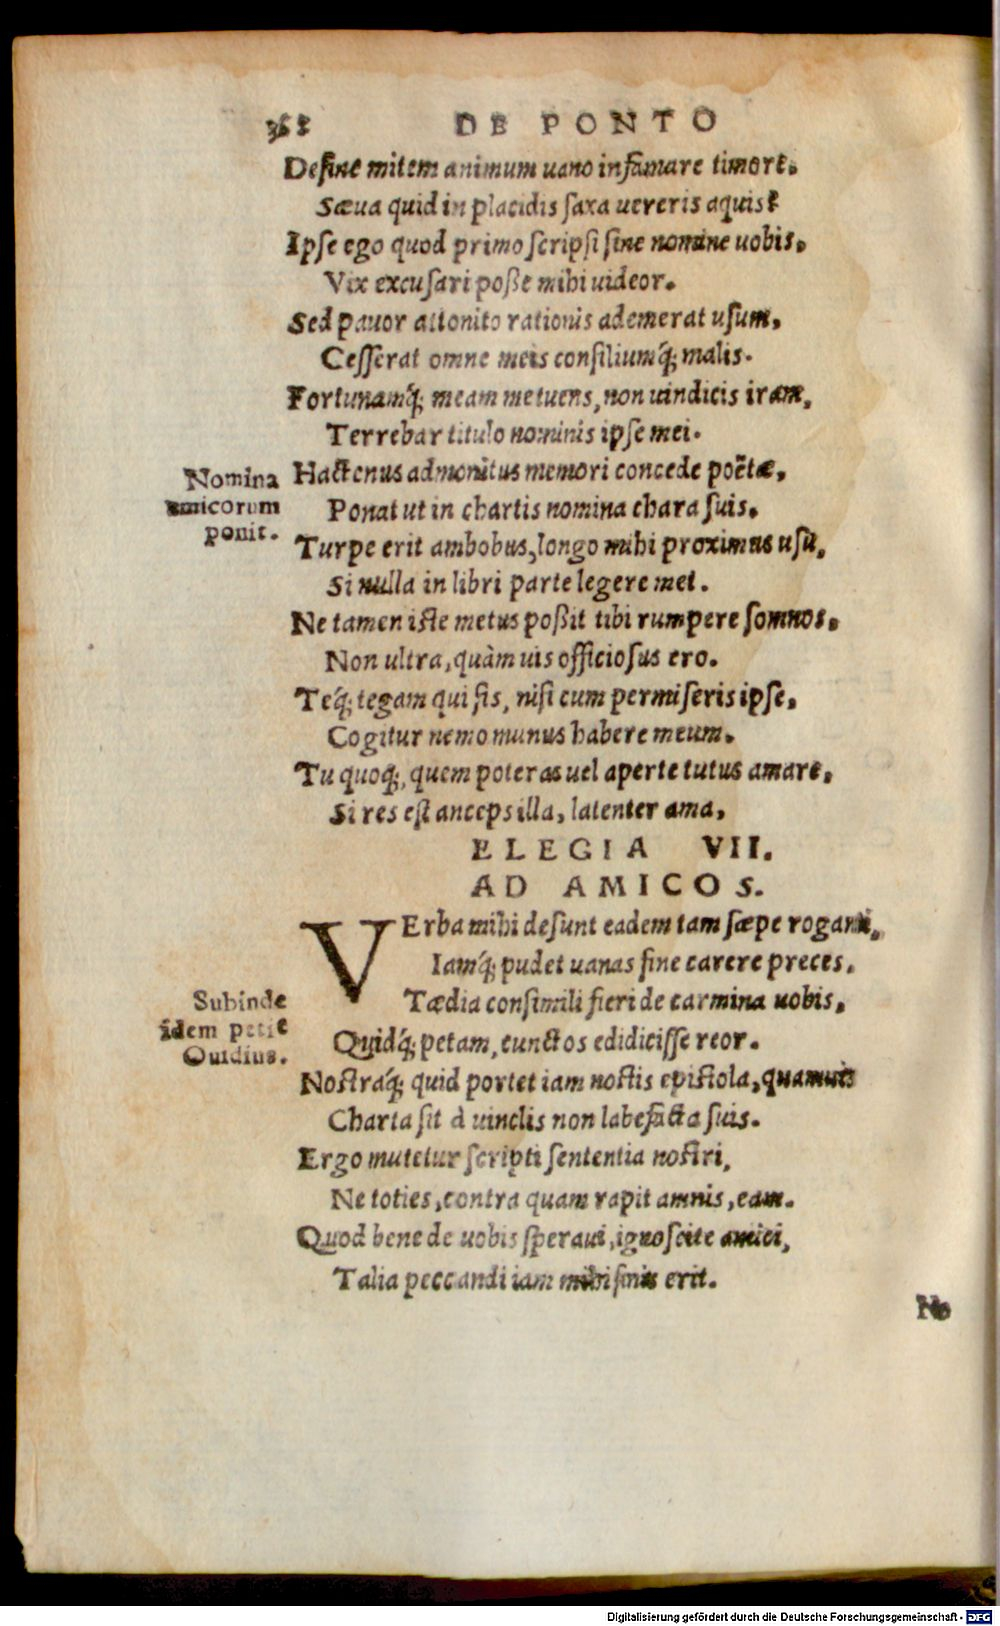 362 DE PONTO
Define mitem animum uano infamare timore.
Sæua quid in placidis ſaxa uereris aquis?
Ipſe ego quod primo ſcripſi ſine nomine uobis.
Vix excuſari poße mihi uideor.
Sed pauor attonito rationis ademerat uſum,
Ceſſerat omne meis conſiliumq́; malis.
Fortunamq́; meam metuens, non uindicis iram,
Terrebar titulo nominis ipſe mei.
Nomina
amicorum
ponit.
Hactenus admonitus memori concede poëtæ,
Ponat ut in chartis nomina chara ſuis.
Turpe erit ambobus, longo mihi proximus uſu,
Si nulla in libri parte legere mei.
Ne tamen iſte metus poßit tibi rumpere ſomnos.
Non ultra, quàm uis officioſus ero.
Teq́; tegam qui ſis, niſi cum permiſeris ipſe,
Cogitur nemo munus habere meum.
Tu quoq;, quem poteras uel aperte tutus amare,
Si res eſt anceps illa, latenter ama,
ELEGIA VII.
AD AMICOS.
VErba mihi deſunt eadem tam ſæpe roganti,
Iamq́; pudet uanas fine carere preces.
Tædia conſimili fieri de carmina uobis,
Subinde
idem petit
Ouidius.
Quidq́; petam, cunctos edidiciſſe reor.
Noſtraq́; quid portet iam noſtis epiſtola, quamuis
Charta ſit à uinclis non labefacta ſuis.
Ergo mutetur ſcripti ſententia noſtri,
Ne toties, contra quam rapit amnis, eam.
Quod bene de uobis ſperaui, ignoſcite amici,
Talia peccandi iam mihi finis erit.
No
Digitalisierung gefördert durch die Deutsche Forschungsgemeinschaft - DFG